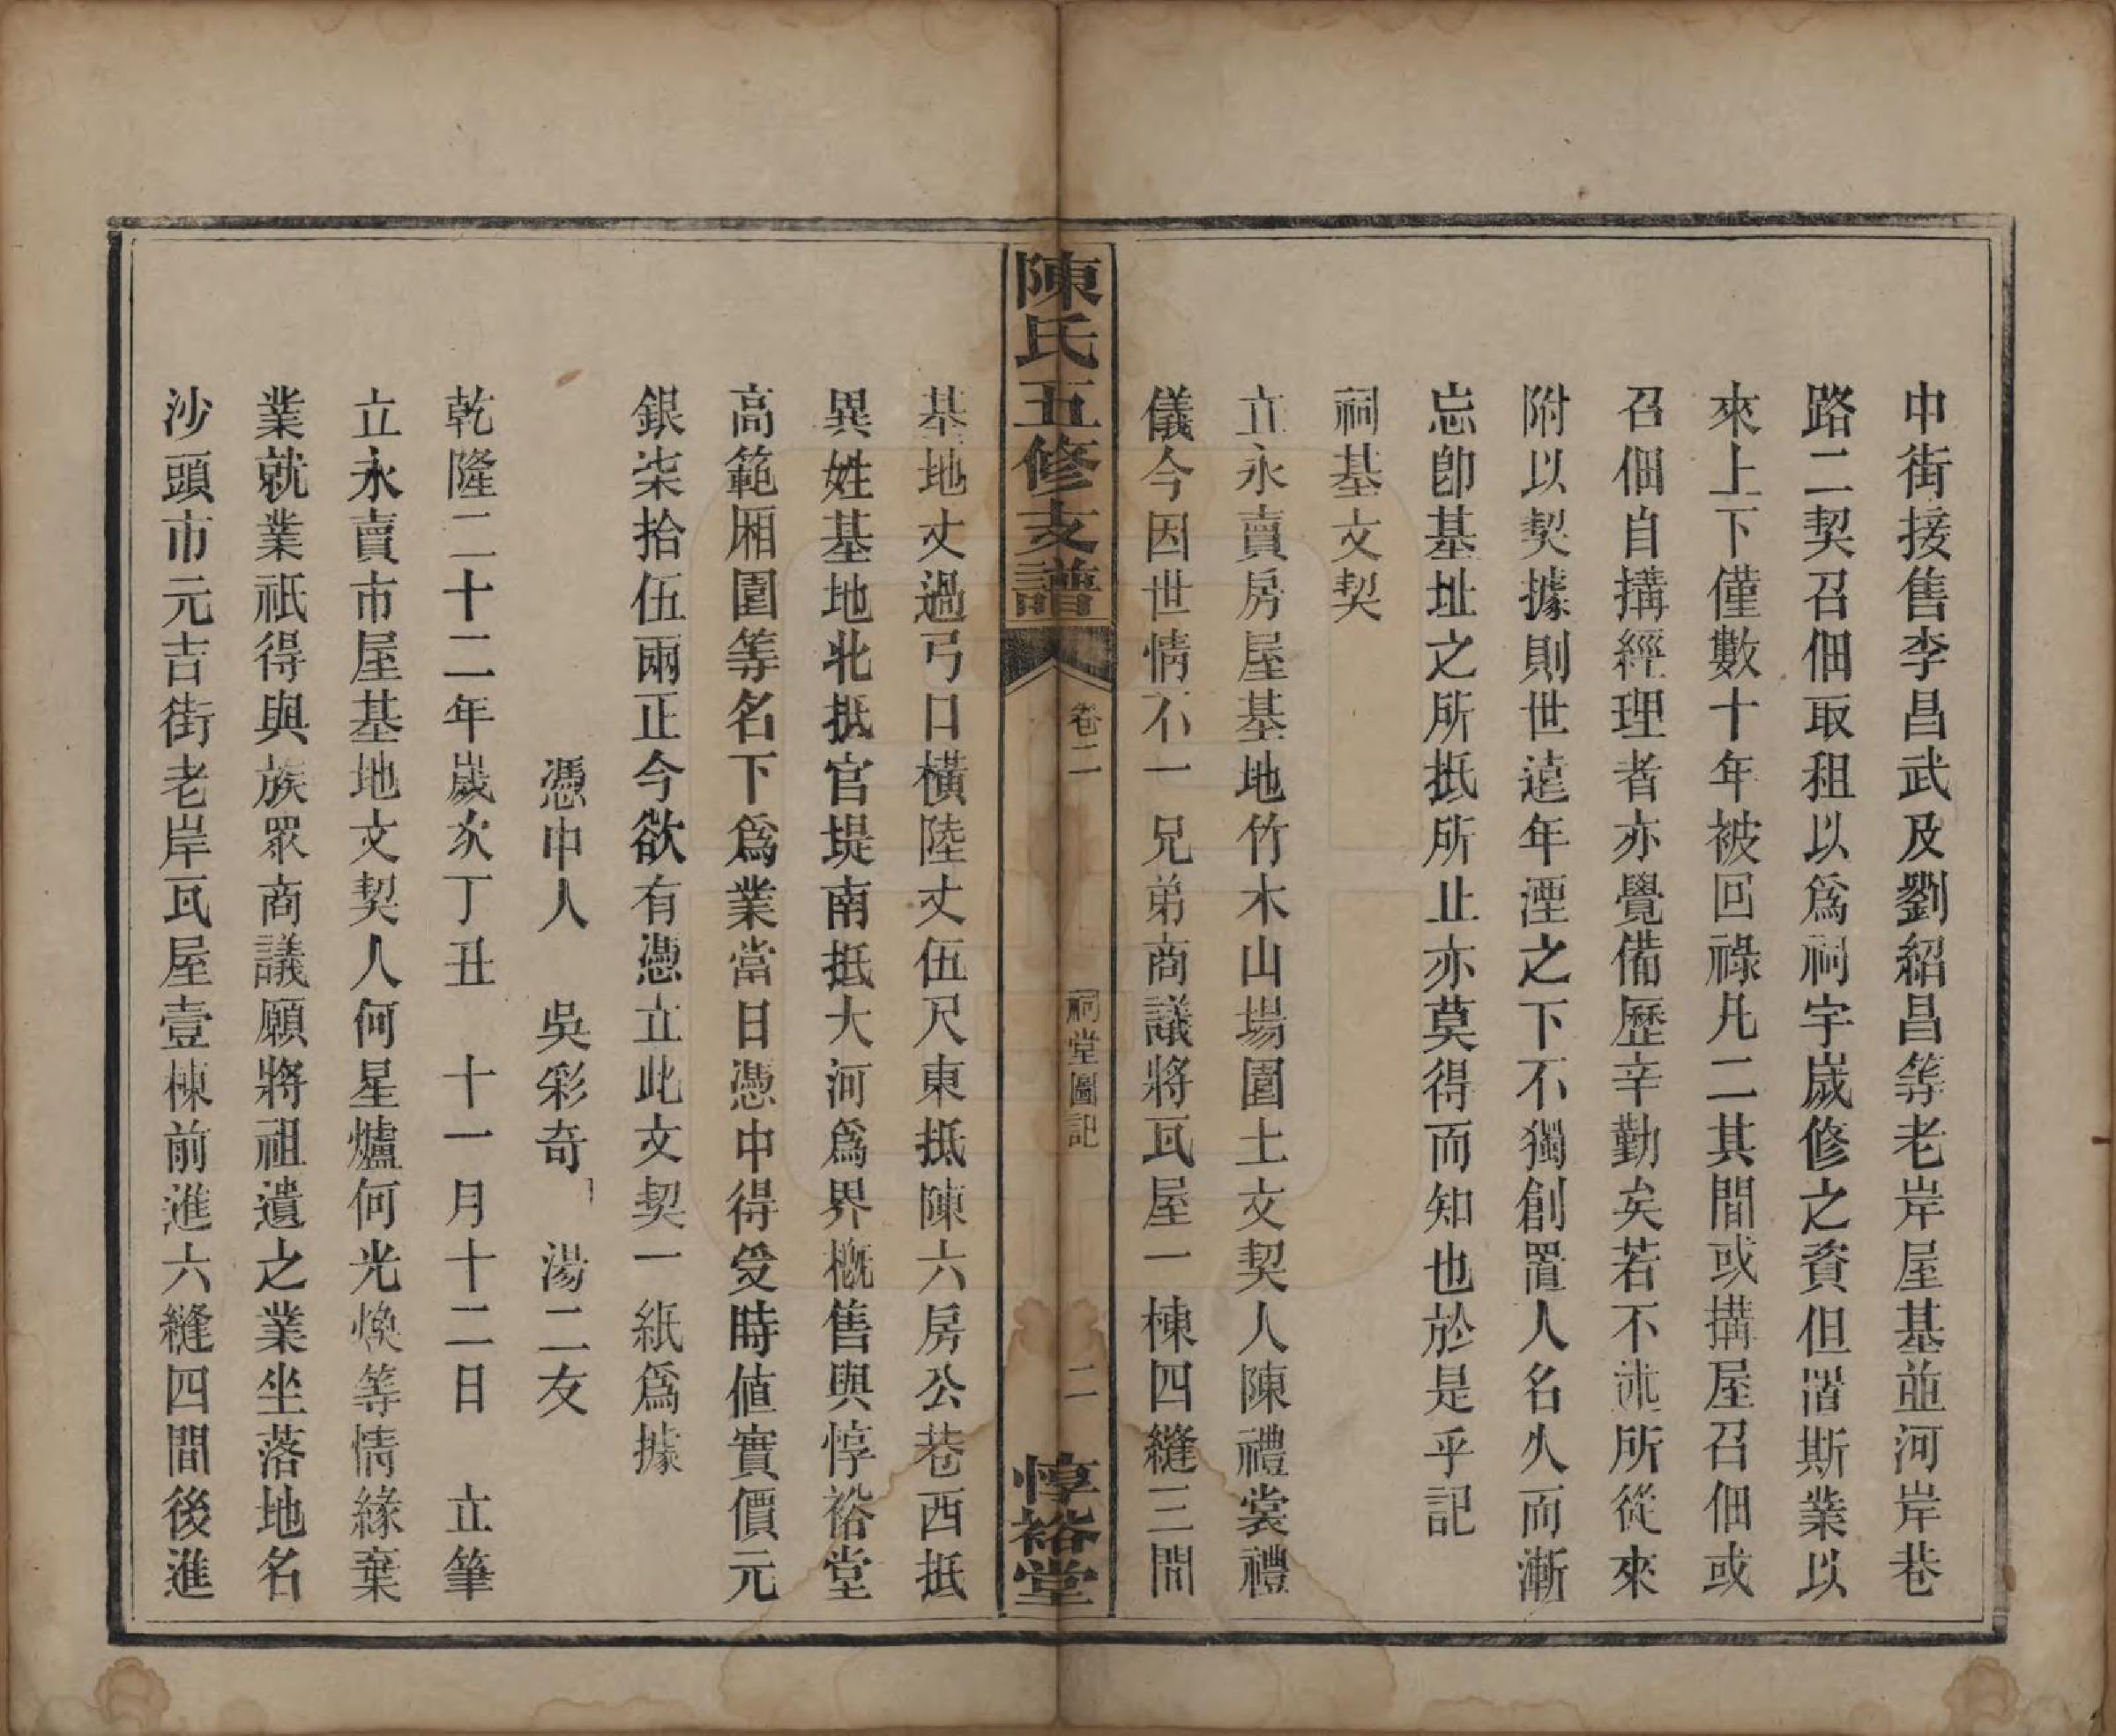 中街接售李昌武及劉紹昌等老岸屋基並河岸巷
路二契召佃取租以爲祠宇歲修之資但置斯業以
來上下僅數十年被回祿凡二其間或搆屋召佃或
召佃自搆經理者亦覺備歷辛勤矣若不述所從來
附以契據則世遠年湮之下不獨創置人名久而漸
忘卽基址之所抵所止亦莫得而知也於是乎記
祠基文契
立永賣房屋基地竹木山場園土文契人陳禮裳禮
儀今因世情不一兄弟商議將瓦屋一棟四縫三間
陳氏五修支譜
卷二
祠堂圖記
二
惇裕堂
基地丈過弓口橫陸丈伍尺東抵陳六房公巷西抵
異姓基地北抵官堤南抵大河爲界槪售與惇裕堂
高範厢園等名下爲業當日憑中得受時値實價元
銀柒拾伍兩正今欲有憑立此文契一紙爲據
憑中人　吳彩奇　湯二友
乾隆二十二年歲次丁丑　十一月十二日　立筆
立永賣市屋基地文契人何星爐何光煥等情緣棄
業就業祇得與族眾商議願將祖遺之業坐落地名
沙頭市元吉街老岸瓦屋壹棟前進六縫四間後進